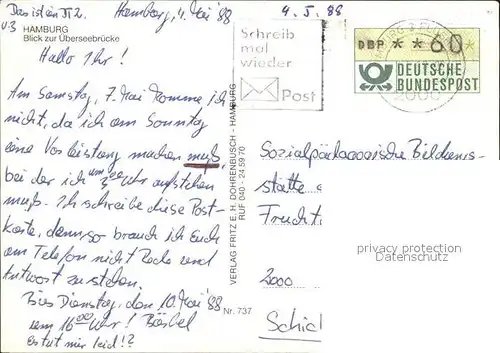 Das ist ein
Hamburg, 4. Mai '88
4. 5. 88
v. 3
HAMBURG
Blick zur Überseebrücke
Hallo Ihr!
Am Samstag, 7. Mai komme ich
nicht, da ich am Sonntag
eine Vorleistung machen muß,
bei der ich um 3 00 Uhr aufstehen
muß. Ich schreibe diese Post-
karte, denn so brauch ich Euch
am Telefon nicht Rede und
Antwort zu stehen.
Bis Dienstag, den 10. Mai '88
um 16 00 Uhr! Bärbel
Es tut mir leid!?
VERLAG FRITZ E. H. DOHRENBUSCH - HAMBURG
RUF 040 - 24 59 70
Nr. 737
Schreib
mal
wieder
Post
DBP * * 60
DEUTSCHE
BUNDESPOST
2000
Sozialpädagogische Bildungs-
stätte
Frucht
2000
Schie
privacy protection
Datenschutz